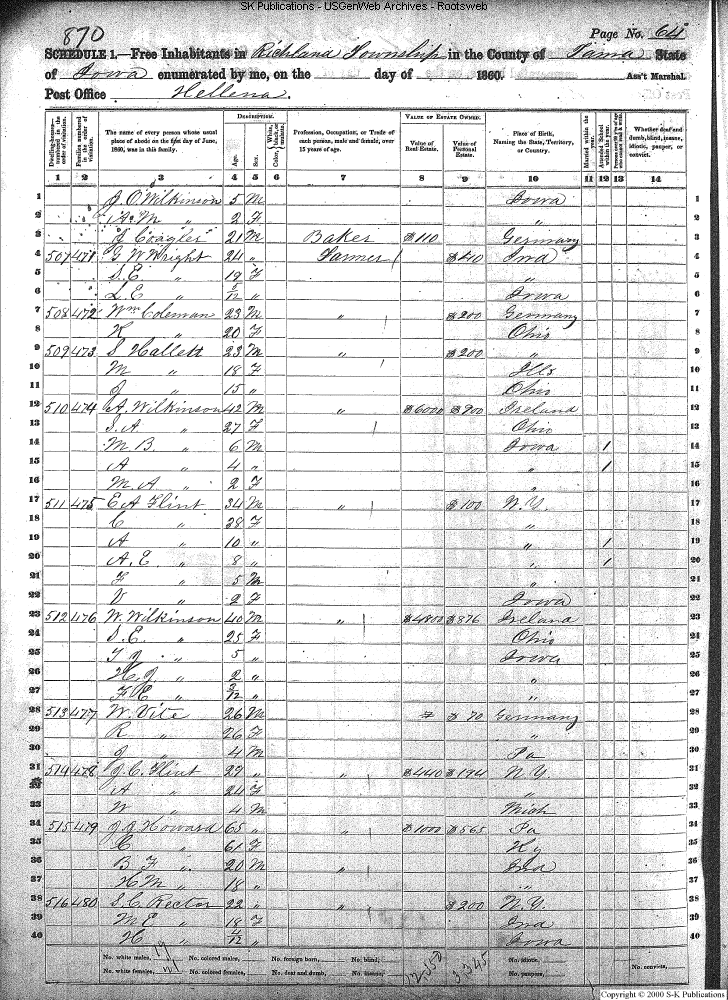 SK Publications - USGenWeb Archives - Rootsweb
870
Page No. 64
SCHEDULE 1.—Free Inhabitants in Richland Township in the County of Tama State
of Iowa enumerated by me, on the day of 1860. Ass't Marshal.
Post Office Hellena.
Dwelling-houses—numbered in the order of visitation. Families numbered in the order of visitation. The name of every person whose usual place of abode on the first day of June, 1860, was in this family. DESCRIPTION. Age. Sex. Color, White, black, or mulatto. Profession, Occupation, or Trade of each person, male and female, over 15 years of age. VALUE OF ESTATE OWNED. Value of Real Estate. Value of Personal Estate. Place of Birth, Naming the State, Territory, or Country. Married within the year. Attended School within the year. Whether deaf and dumb, blind, insane, idiotic, pauper, or convict.
1 2 3 4 5 6 7 8 9 10 11 12 13 14
1 J. O. Wilkinson 5 M Iowa 1
2 M " 2 F " 2
3 Coagler 21 M Baker $110 Germany 3
4 507 471 G W Wright 24 " Farmer / $40 Ind 4
5 S. E " 19 F " 5
6 L. E " /12 " Iowa 6
7 508 472 Wm Coleman 23 M " / $200 Germany 7
8 K " 20 F Ohio 8
9 509 473 S Hallett 23 M " $200 " 9
10 M " 18 F Ills 10
11 J " 15 " Ohio 11
12 510 474 A. Wilkinson 42 M " $6000 $900 Ireland 12
13 S. A " 27 F / Ohio 13
14 M. B. " 6 M Iowa 1 14
15 A " 4 " " 1 15
16 M A " 2 F " 16
17 511 475 E A Flint 34 M " / $100 N. Y. 17
18 C " 28 F " 18
19 A " 10 " " 1 19
20 A. E " 8 " " 1 20
21 F " 5 M " 21
22 V " 2 F Iowa 22
23 512 476 W. Wilkinson 40 M " / $4800 $876 Ireland 23
24 S. E. " 25 F Ohio 24
25 T J " 5 " Iowa 25
26 H. J " 2 " " 26
27 F E " /12 " " 27
28 513 477 W. Vite 26 M $70 Germany 28
29 K " 26 F " 29
30 J " 4 M Pa 30
31 514 478 J. C. Flint 29 " " / $440 $194 N. Y. 31
32 A " 24 F " 32
33 W " 4 M Mich 33
34 515 479 J A Howard 65 " " $1000 $565 Pa 34
35 C " 61 F Ky 35
36 B F " 20 M Ind 36
37 H M " 18 " " 37
38 516 480 S. C. Rector 22 " " $200 N. Y. 38
39 M E " 18 F Ind 39
40 H " /12 " Iowa 40
No. white males, 19 No. colored males, No. foreign born, No. blind, 12.350 3.345 No. idiotic, No. convicts,
No. white females, 21 No. colored females, No. deaf and dumb, No. insane, No. paupers,
Copyright © 2000 S-K Publications